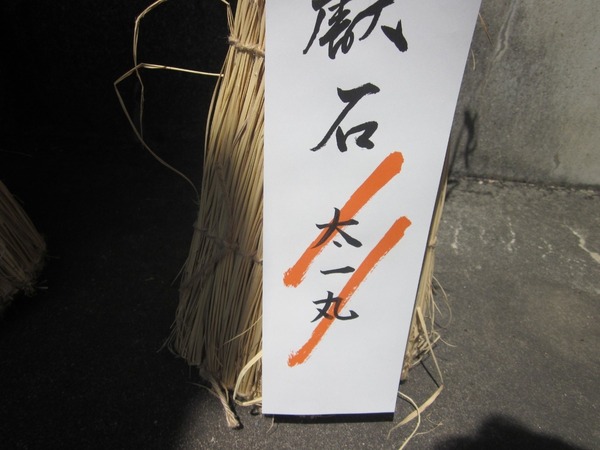 獻石
太一丸